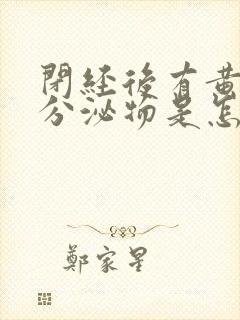 閉經後有黄
分泌物是怎
鄭家星